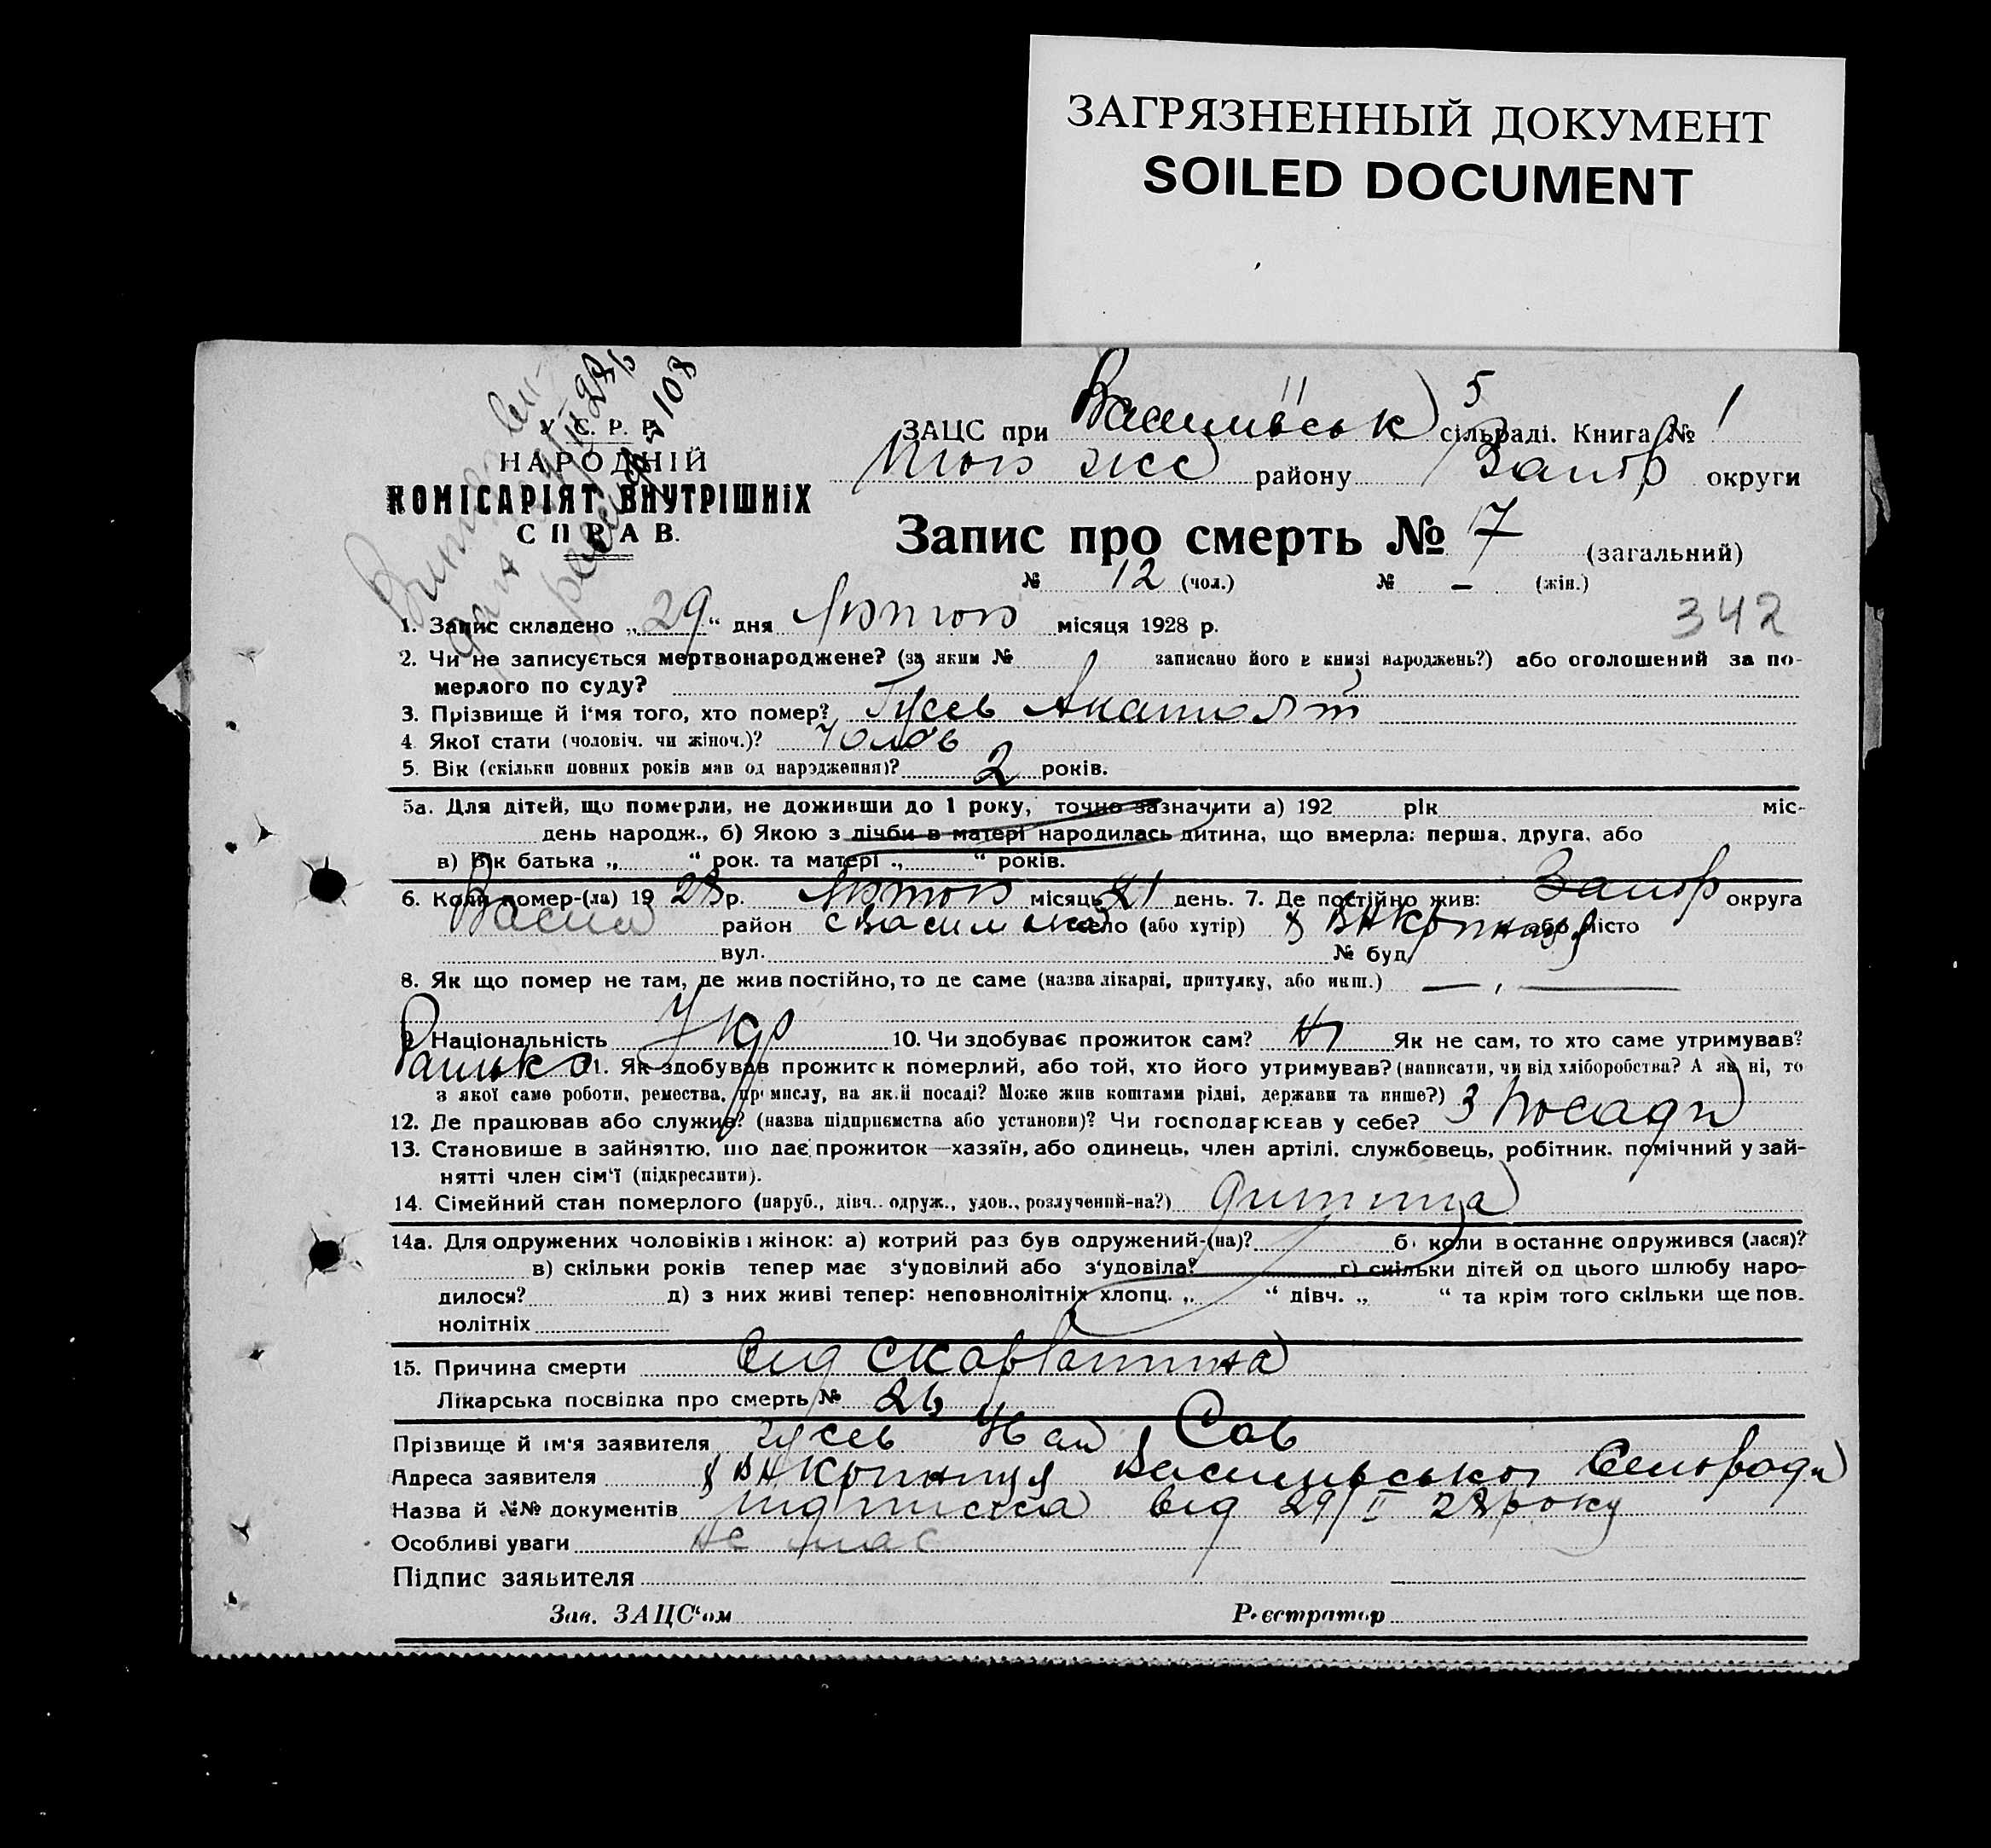 ЗАГРЯЗНЕННЫЙ ДОКУМЕНТ
SOILED DOCUMENT
У. С. Р. Р.
НАРОДНІЙ
КОМІСАРІЯТ ВНУТРІШНІХ
СПРАВ.
ЗАЦС при Василівськ 5 сільраді. Книга № 1
району Запор округи
Запис про смерть № 7 (загальний)
№ 12 (чол.) № – (жін.)
342
1. Запис складено „29“ дня Лютого місяця 1928 р.
2. Чи не записується мертвонароджене? (за яким № записано його в книзі народжень?) або оголошений за по-
мерлого по суду?
3. Прізвище й ім'я того, хто помер? Гусев Анатолій
4. Якої стати (чоловіч. чи жіноч.)? Чолов
5. Вік (скільки повних років мав од народження)? 2 років.
5а. Для дітей, що померли, не доживши до 1 року, точно зазначити а) 192 рік міс-
день народж., б) Якою з лічби в матері народилась дитина, що вмерла: перша, друга, або
в) Вік батька „ “ рок. та матері „ “ років.
6. Коли помер-(ла) 19 28 р. Лютого місяць 21 день. 7. Де постійно жив: Запор округа
Васил район село (або хутір) або місто
вул. № буд.
8. Як що помер не там, де жив постійно, то де саме (назва лікарні, притулку, або инш.) —
9. Національність Укр 10. Чи здобуває прожиток сам? Ні Як не сам, то хто саме утримував?
Батько 11. Як здобував прожиток померлий, або той, хто його утримував? (написати, чи від хліборобства? А як ні, то
з якої саме роботи, ремества, промислу, на якій посаді? Може жив коштами рідні, держави та инше?) З посади
12. Де працював або служив? (назва підприємства або установи)? Чи господарював у себе?
13. Становише в зайняттю, що дає прожиток—хазяїн, або одинець, член артілі, службовець, робітник, помічний у зай-
нятті член сім'ї (підкреслити).
14. Сімейний стан померлого (паруб., дівч., одруж., удов., розлучений-на?) дитина
14а. Для одружених чоловіків і жінок: а) котрий раз був одружений-(на)? б) коли востаннє одружився (лася)?
в) скільки років тепер має з'удовілий або з'удовіла? г) скільки дітей од цього шлюбу наро-
дилося? д) з них живі тепер: неповнолітніх хлопц. „ “ дівч. „ “ та крім того скільки ще пов.
нолітніх
15. Причина смерти Від скарлатина
Лікарська посвідка про смерть №
Прізвище й ім'я заявителя Гусев Ив Сав
Адреса заявителя Василівської Сельради
Назва й №№ документів підписка від 29/II 28 року
Особливі уваги не має
Підпис заявителя
Зав. ЗАЦС'ом Реєстратор